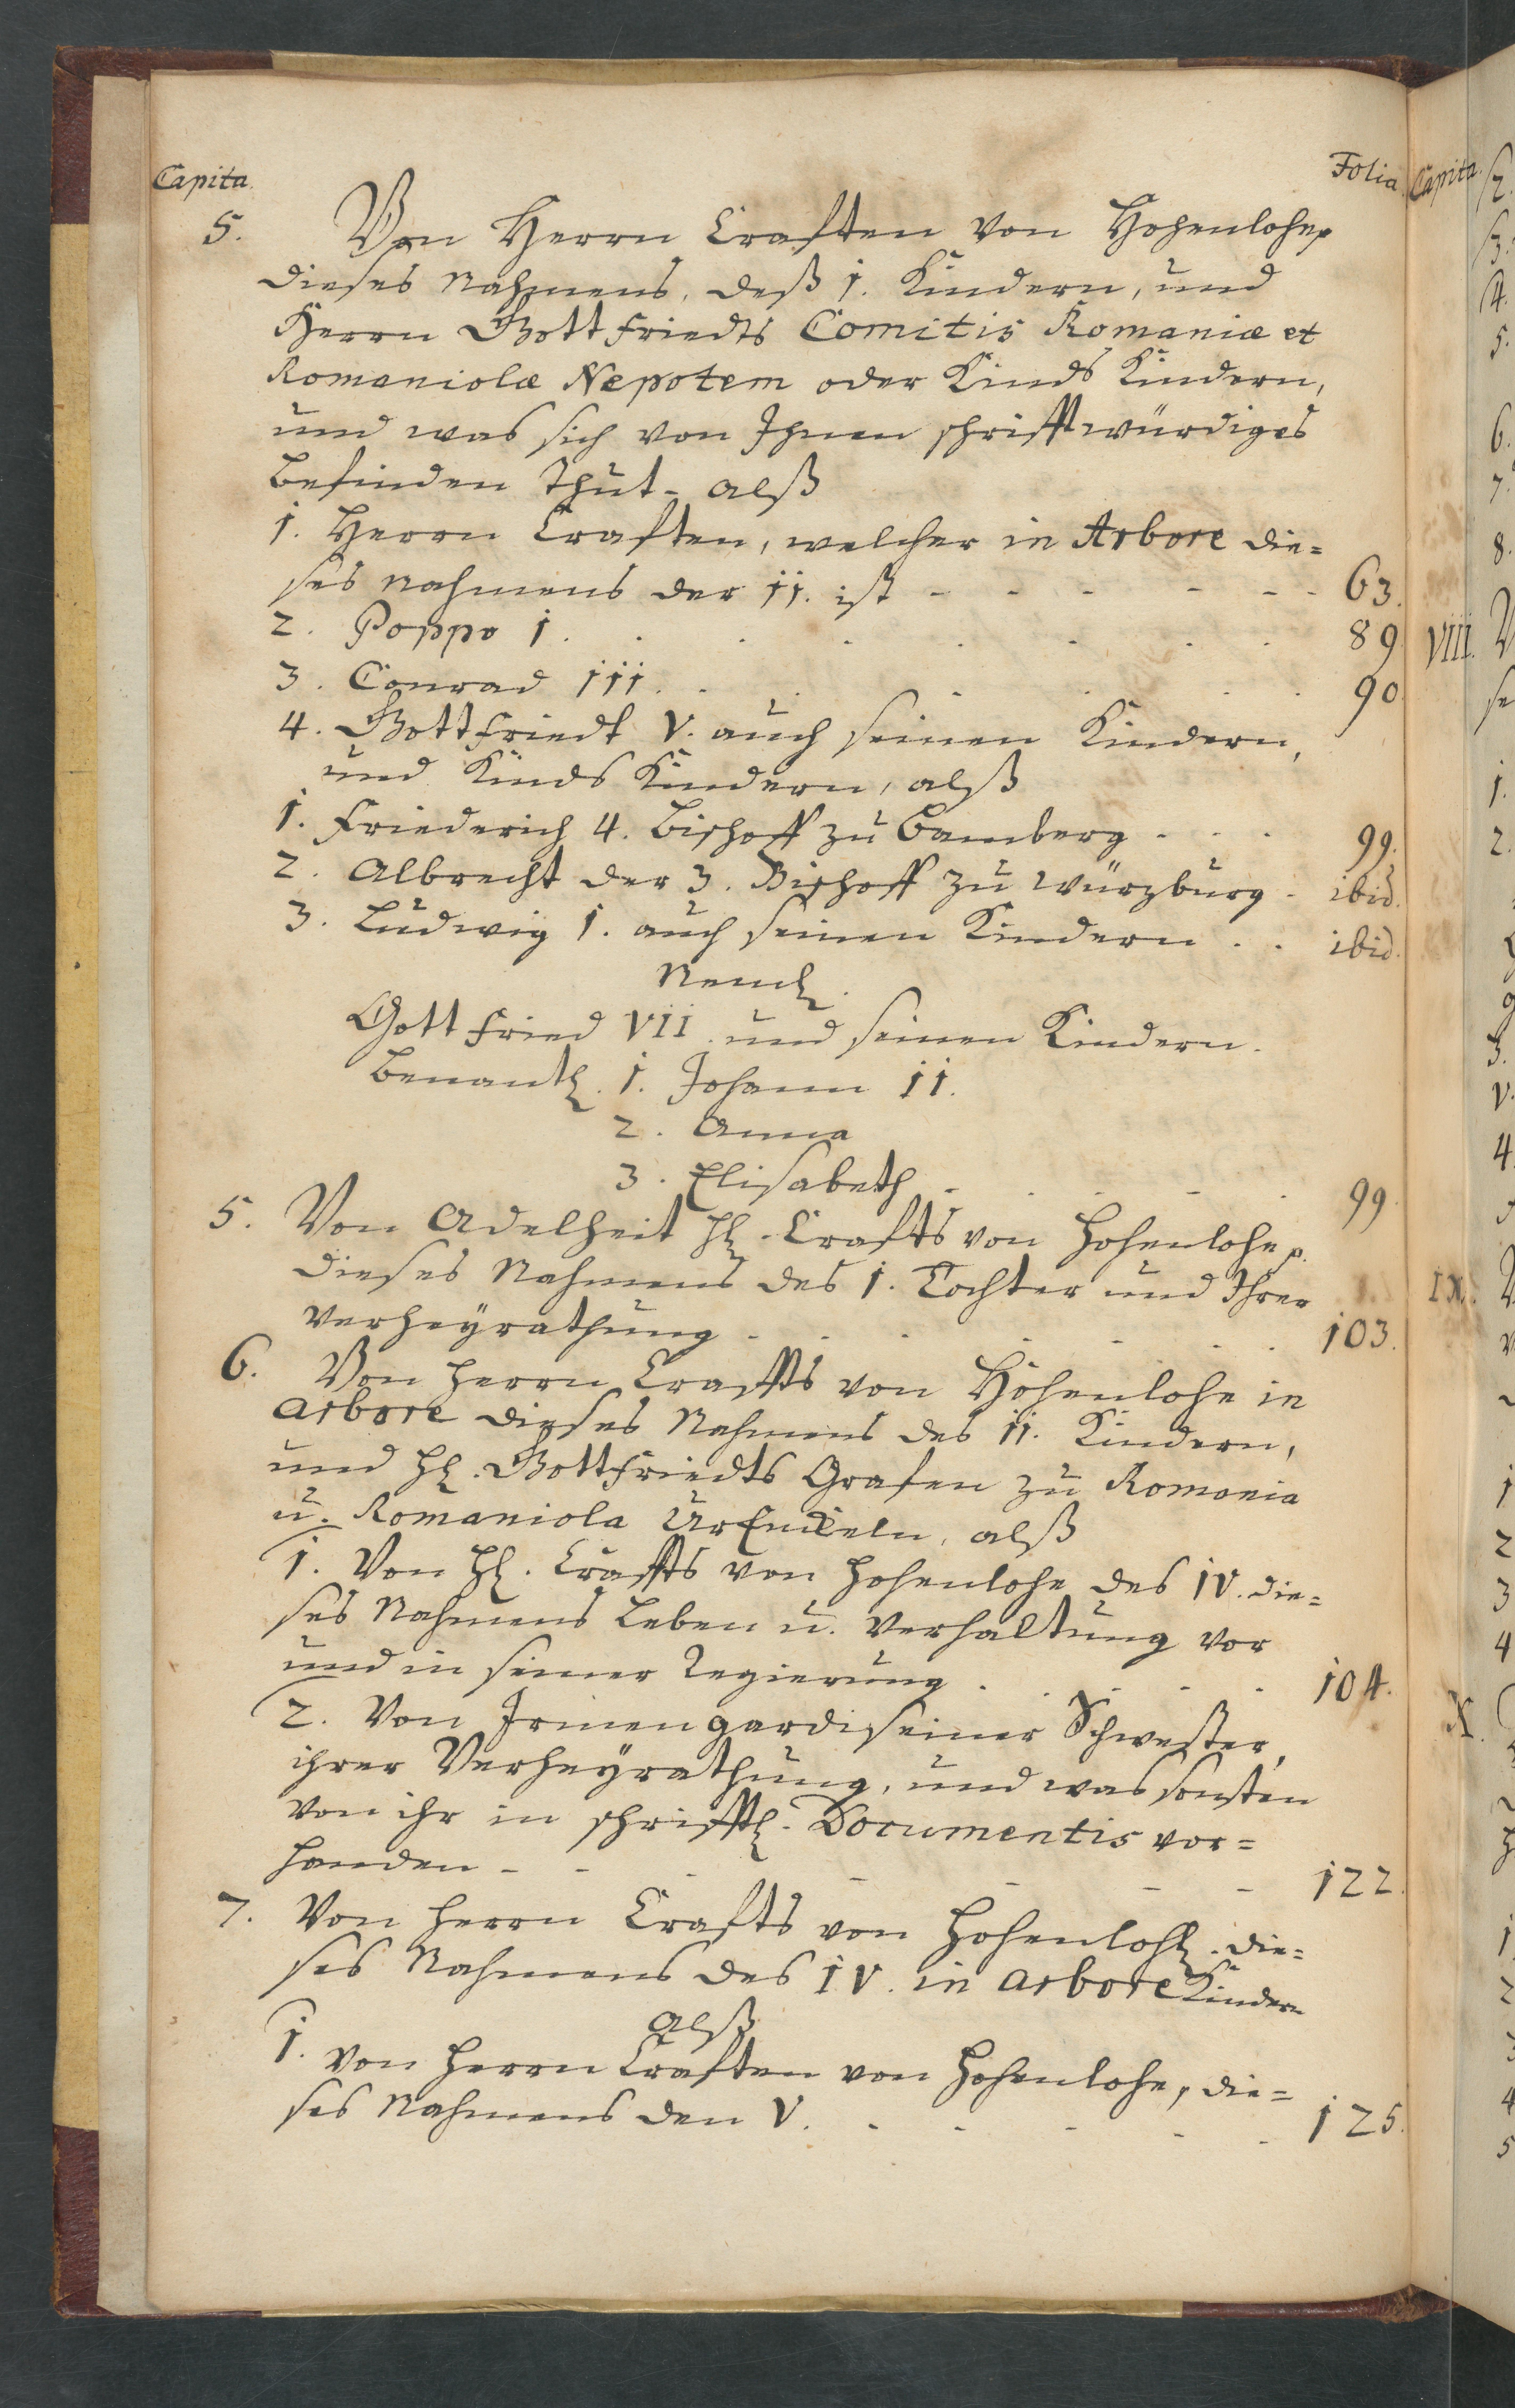 Capita. Folia.
5. Von Herrn Craften von Hohenlohe
dieses Nahmens, deß 1. Kindern, und
Herrn Gottfriedts Comitis Romaniæ et
Romaniolæ Nepotem oder Kinds Kindern,
und was sich von Ihnen schrifftwürdiges
befinden thut- alß
1. Herrn Craften, welcher in Arbore die=
ses Nahmens der II. ist - - - - - - 63.
2. Poppo I. . . . . . . 89
3. Conrad III. . . . . . . 90
4. Gottfriedt V. auch seinen Kindern,
und Kinds Kindern, alß
1. Friederich 4. Bischoff zu Bamberg - - - 99.
2. Albrecht der 3. Bischoff zu Würzburg - ibid.
3. Ludwig I. auch seinen Kindern . . ibid.
Neml.
Gottfried VII. und seinen Kindern.
benantl. 1. Johann II.
2. Anna
3. Elisabeth - - - - 99
5. Von Adelheit H. Crafts von Hohenlohe
dieses Nahmens des I. Tochter und Ihrer
Verheyrathung - - - - - - 103.
6. Von Herrn Craffts von Hohenlohe in
Arbore dieses Nahmens des II. Kindern,
und H. Gottfriedts Grafen zu Romania
u. Romaniola UrEnckeln, alß
1. Von H. Craffts von Hohenlohe des IV. die=
ses Nahmens Leben u. Verhaltung vor
und in seiner Regierung - - - - 104.
2. Von Irmengardi seiner Schwester,
ihrer Verheyrathung, und was sonsten
von ihr in schrifftl. Documentis vor=
handen - - - - - - - 122.
7. Von Herrn Crafts von Hohenlohe. die=
ses Nahmens des IV. in Arbore Kindern
alß
1. von Herrn Craften von Hohenlohe, die=
ses Nahmens den V. - - - - - 125.
Capita.
VIII.
IX.
X.